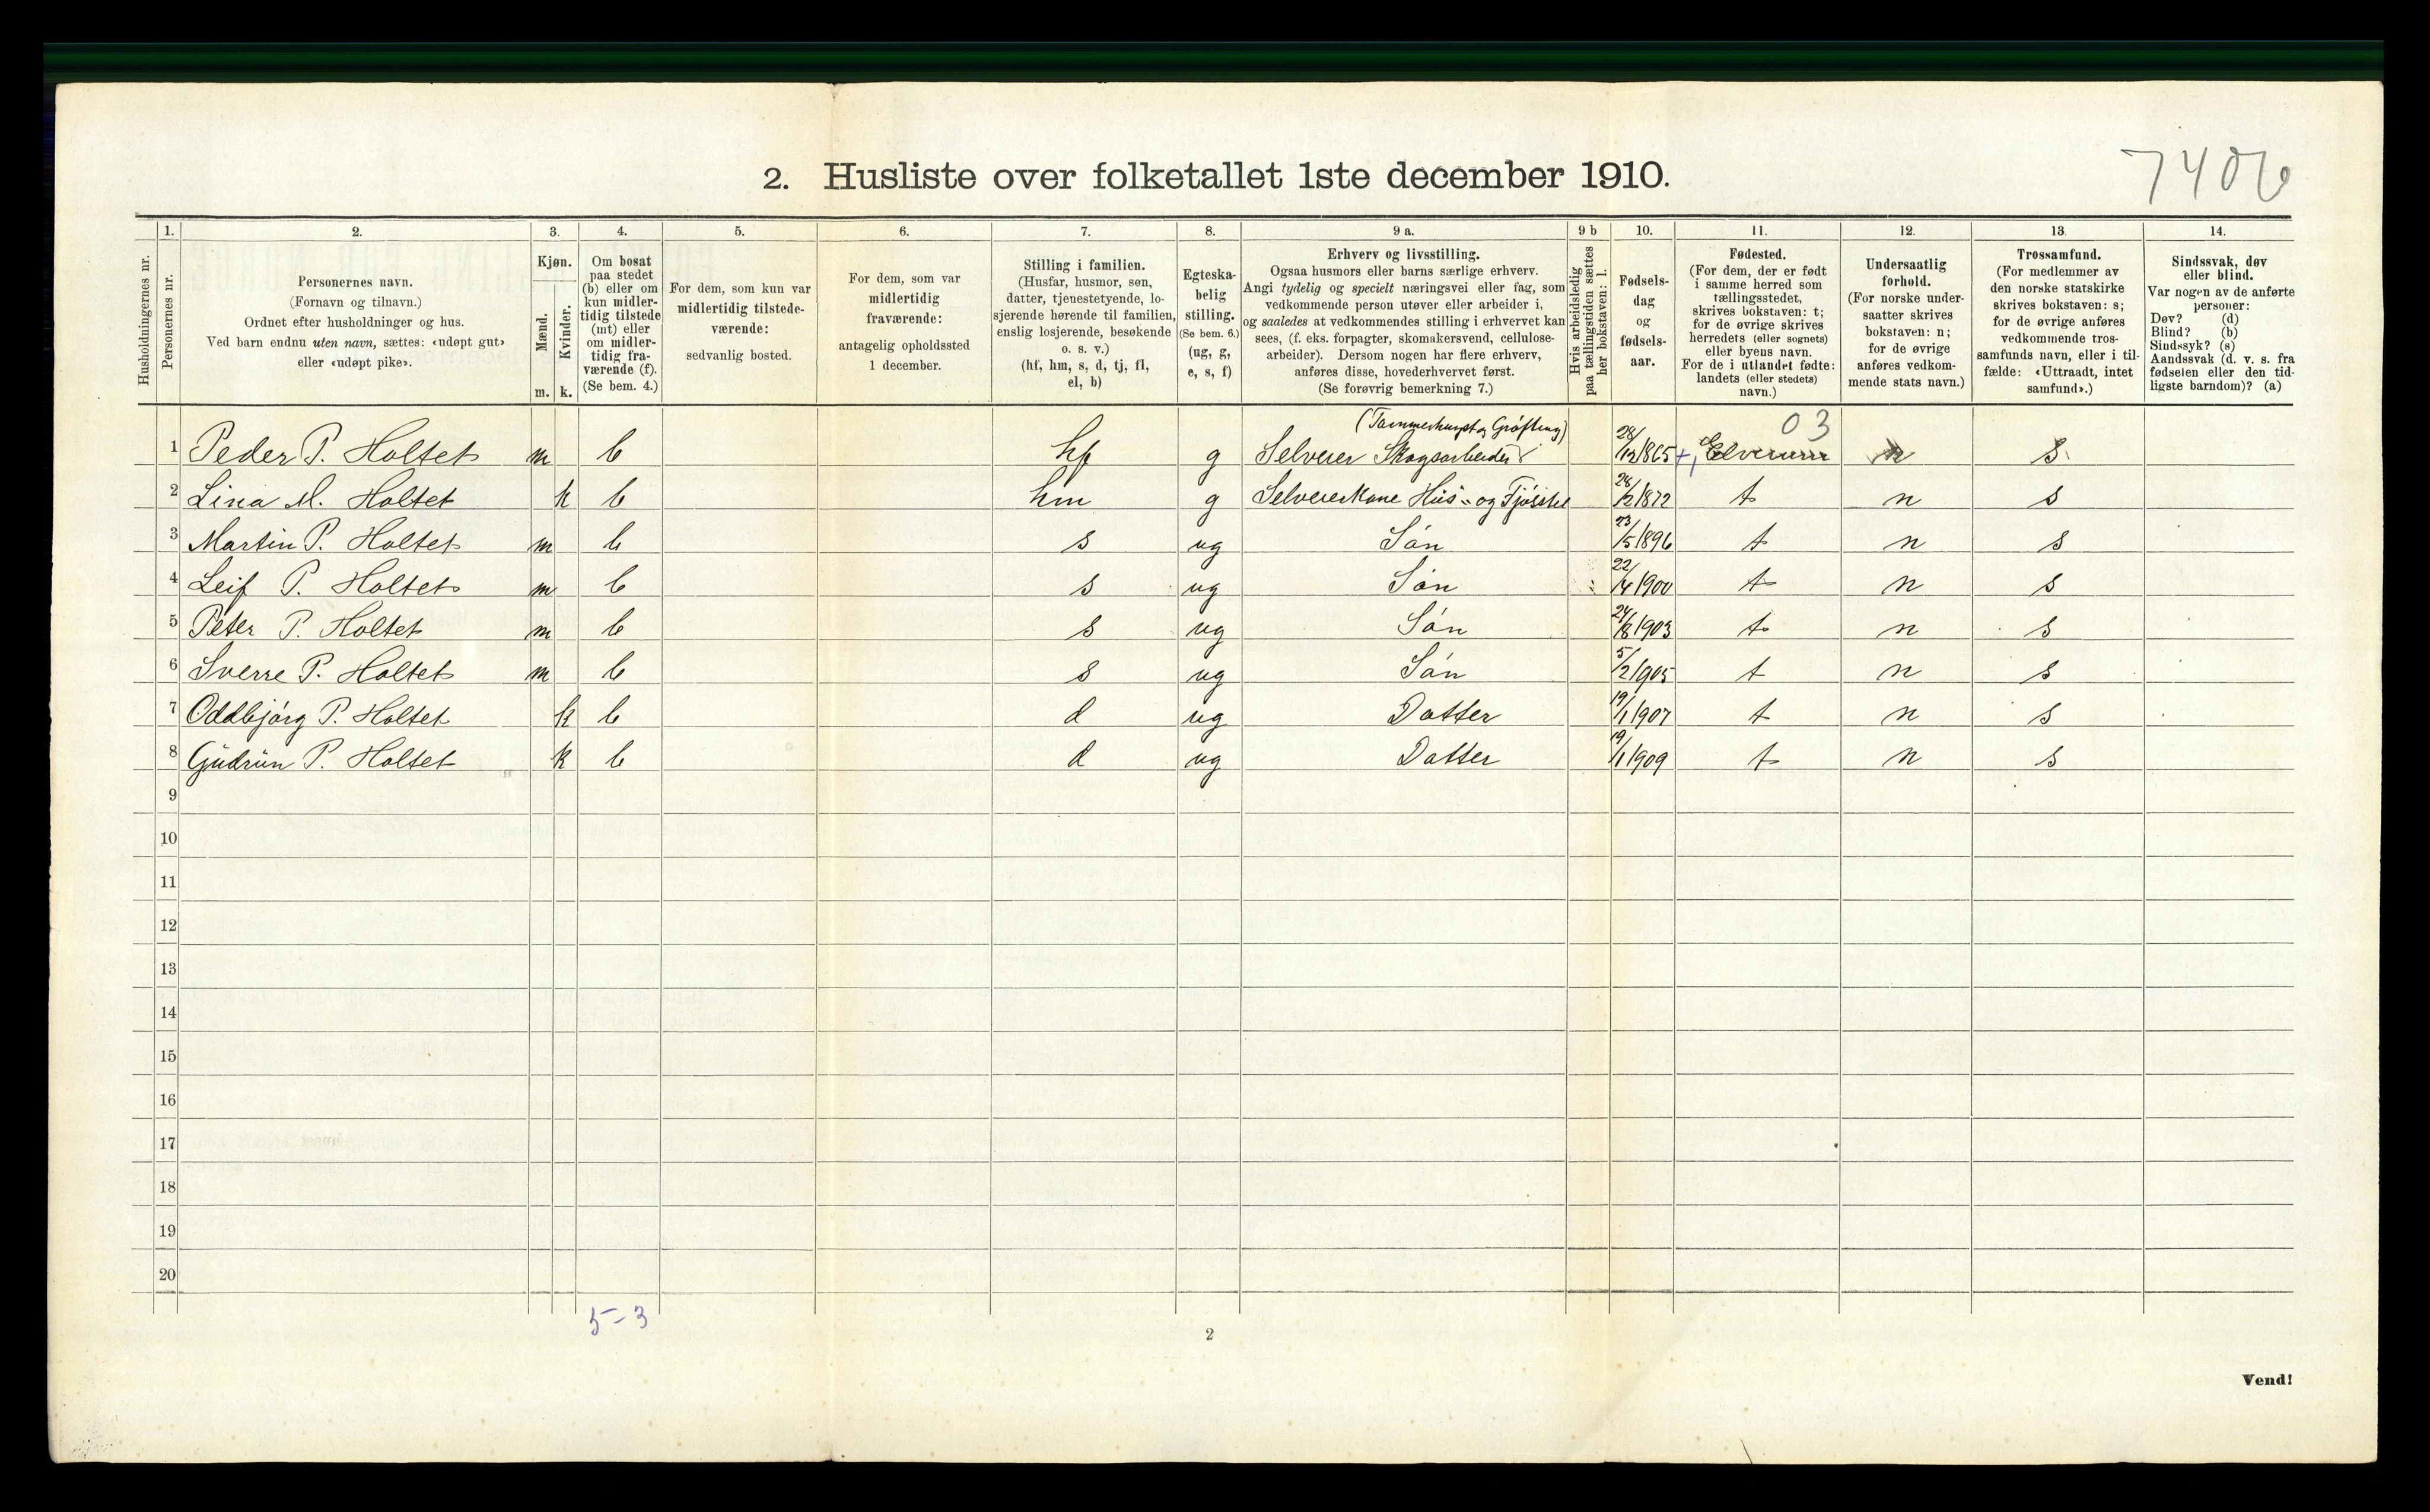 7406
2. Husliste over folketallet 1ste december 1910.
Husholdningernes nr.
1.
Personernes nr.
2.
Personernes navn.
(Fornavn og tilnavn.)
Ordnet efter husholdninger og hus.
Ved barn endnu uten navn, sættes: «udøpt gut»
eller «udøpt pike».
3.
Kjøn.
Mænd.
m.
Kvinder.
k.
4.
Om bosat
paa stedet
(b) eller om
kun midler-
tidig tilstede
(mt) eller
om midler-
tidig fra-
værende (f).
(Se bem. 4.)
5.
For dem, som kun var
midlertidig tilstede-
værende:
sedvanlig bosted.
6.
For dem, som var
midlertidig
fraværende:
antagelig opholdssted
1 december.
7.
Stilling i familien.
(Husfar, husmor, søn,
datter, tjenestetyende, lo-
sjerende hørende til familien,
enslig losjerende, besøkende
o. s. v.)
(hf, hm, s, d, tj, fl,
el, b)
8.
Egteska-
belig
stilling.
(Se bem. 6.)
(ug, g,
e, s, f)
9 a.
Erhverv og livsstilling.
Ogsaa husmors eller barns særlige erhverv.
Angi tydelig og specielt næringsvei eller fag, som
vedkommende person utøver eller arbeider i,
og saaledes at vedkommendes stilling i erhvervet kan
sees, (f. eks. forpagter, skomakersvend, cellulose-
arbeider). Dersom nogen har flere erhverv,
anføres disse, hovederhvervet først.
(Se forøvrig bemerkning 7.)
9 b
Hvis arbeidsledig
paa tællingstiden sættes
her bokstaven: l.
10.
Fødsels-
dag
og
fødsels-
aar.
11.
Fødested.
(For dem, der er født
i samme herred som
tællingsstedet,
skrives bokstaven: t;
for de øvrige skrives
herredets (eller sognets)
eller byens navn.
For de i utlandet fødte:
landets (eller stedets)
navn.)
12.
Undersaatlig
forhold.
(For norske under-
saatter skrives
bokstaven: n;
for de øvrige
anføres vedkom-
mende stats navn.)
13.
Trossamfund.
(For medlemmer av
den norske statskirke
skrives bokstaven: s;
for de øvrige anføres
vedkommende tros-
samfunds navn, eller i til-
fælde: «Uttraadt, intet
samfund».)
14.
Sindssvak, døv
eller blind.
Var nogen av de anførte
personer:
Døv? (d)
Blind? (b)
Sindssyk? (s)
Aandssvak (d. v. s. fra
fødselen eller den tid-
ligste barndom)? (a)
(Tømmerhugst og Grøfting) 03
1 Peder P. Holtet m b hf g Selveier Skogsarbeider 28/12 1865 +, Elverum n s
2 Lina M. Holtet k b hm g Selveierkone Hus- og Fjøsstel 1872 t n s
3 Martin P. Holtet m b s ug Søn 23/5 1896 t n s
4 Leif P. Holtet m b s ug Søn 22/4 1900 t n s
5 Peter P. Holtet m b s ug Søn 24/8 1903 t n s
6 Sverre P. Holtet m b s ug Søn 5/2 1905 t n s
7 Oddbjørg P. Holtet k b d ug Datter 19/1 1907 t n s
8 Gudrun P. Holtet k b d ug Datter 19/1 1909 t n s
9
10
11
12
13
14
15
16
17
18
19
20
5-3
2
Vend!